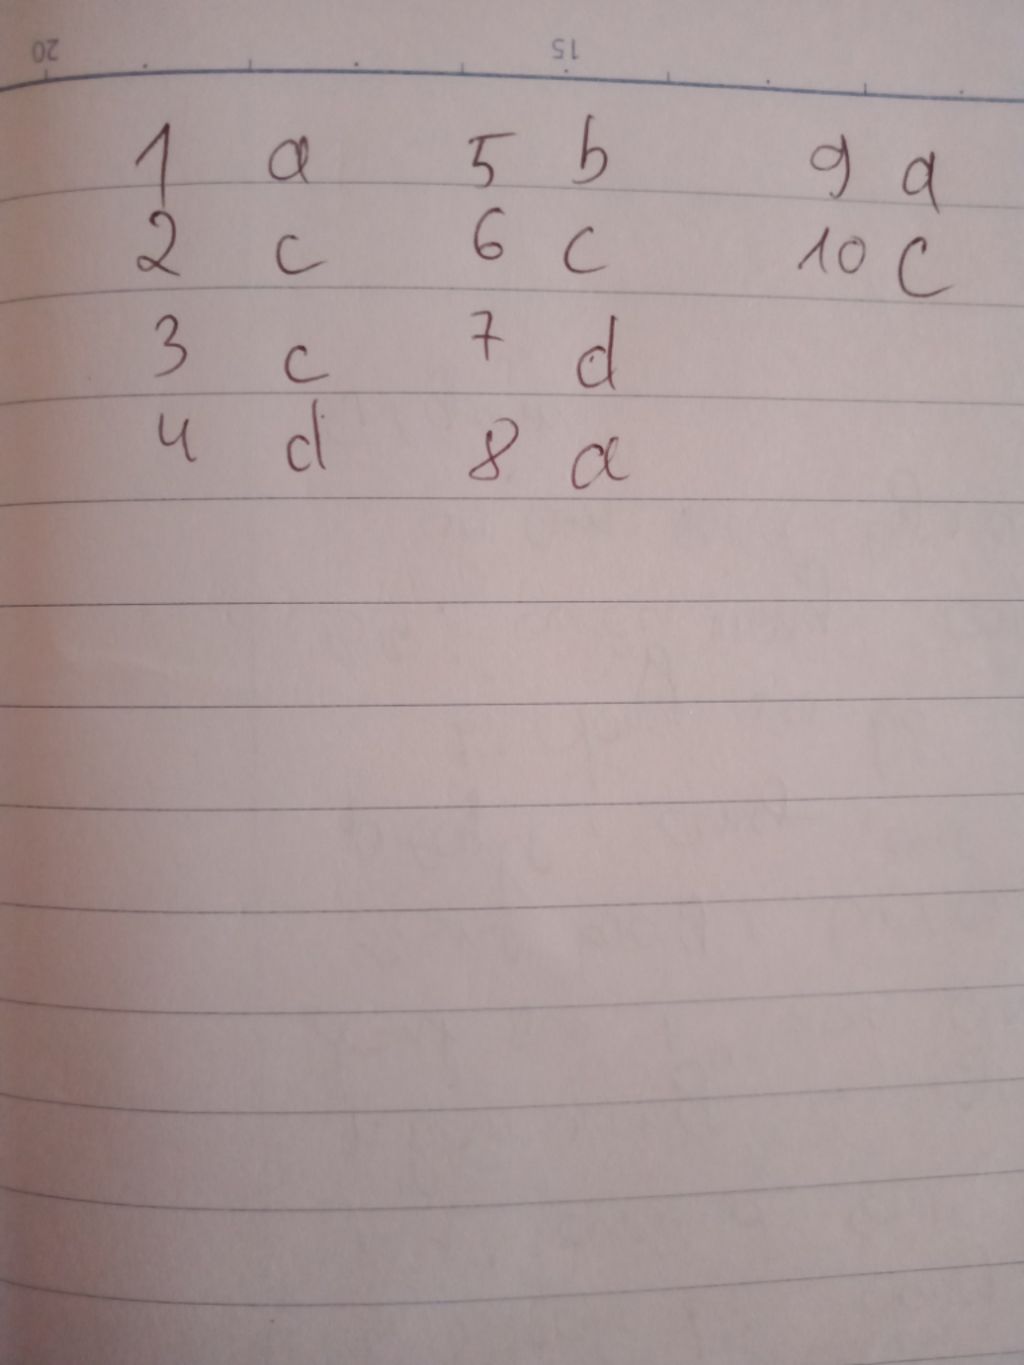 20 15
1 a 5 b 9 a
2 c 6 c 10 c
3 c 7 d
4 d 8 a